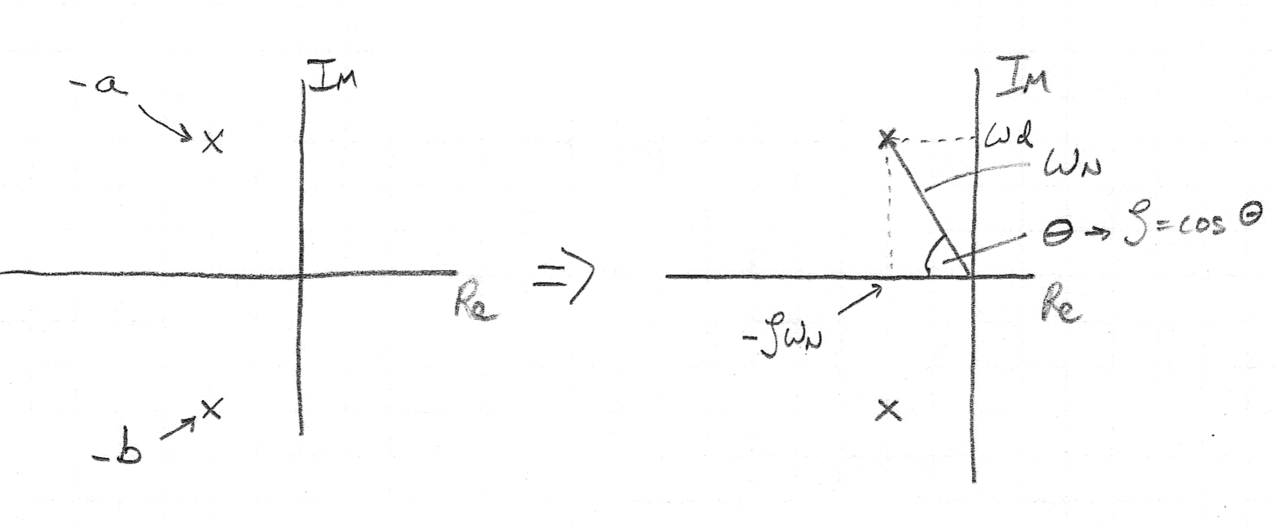 -a
Im
Re
-b
=>
Im
ωd
ωN
θ → ζ = cos θ
Re
-ζωN